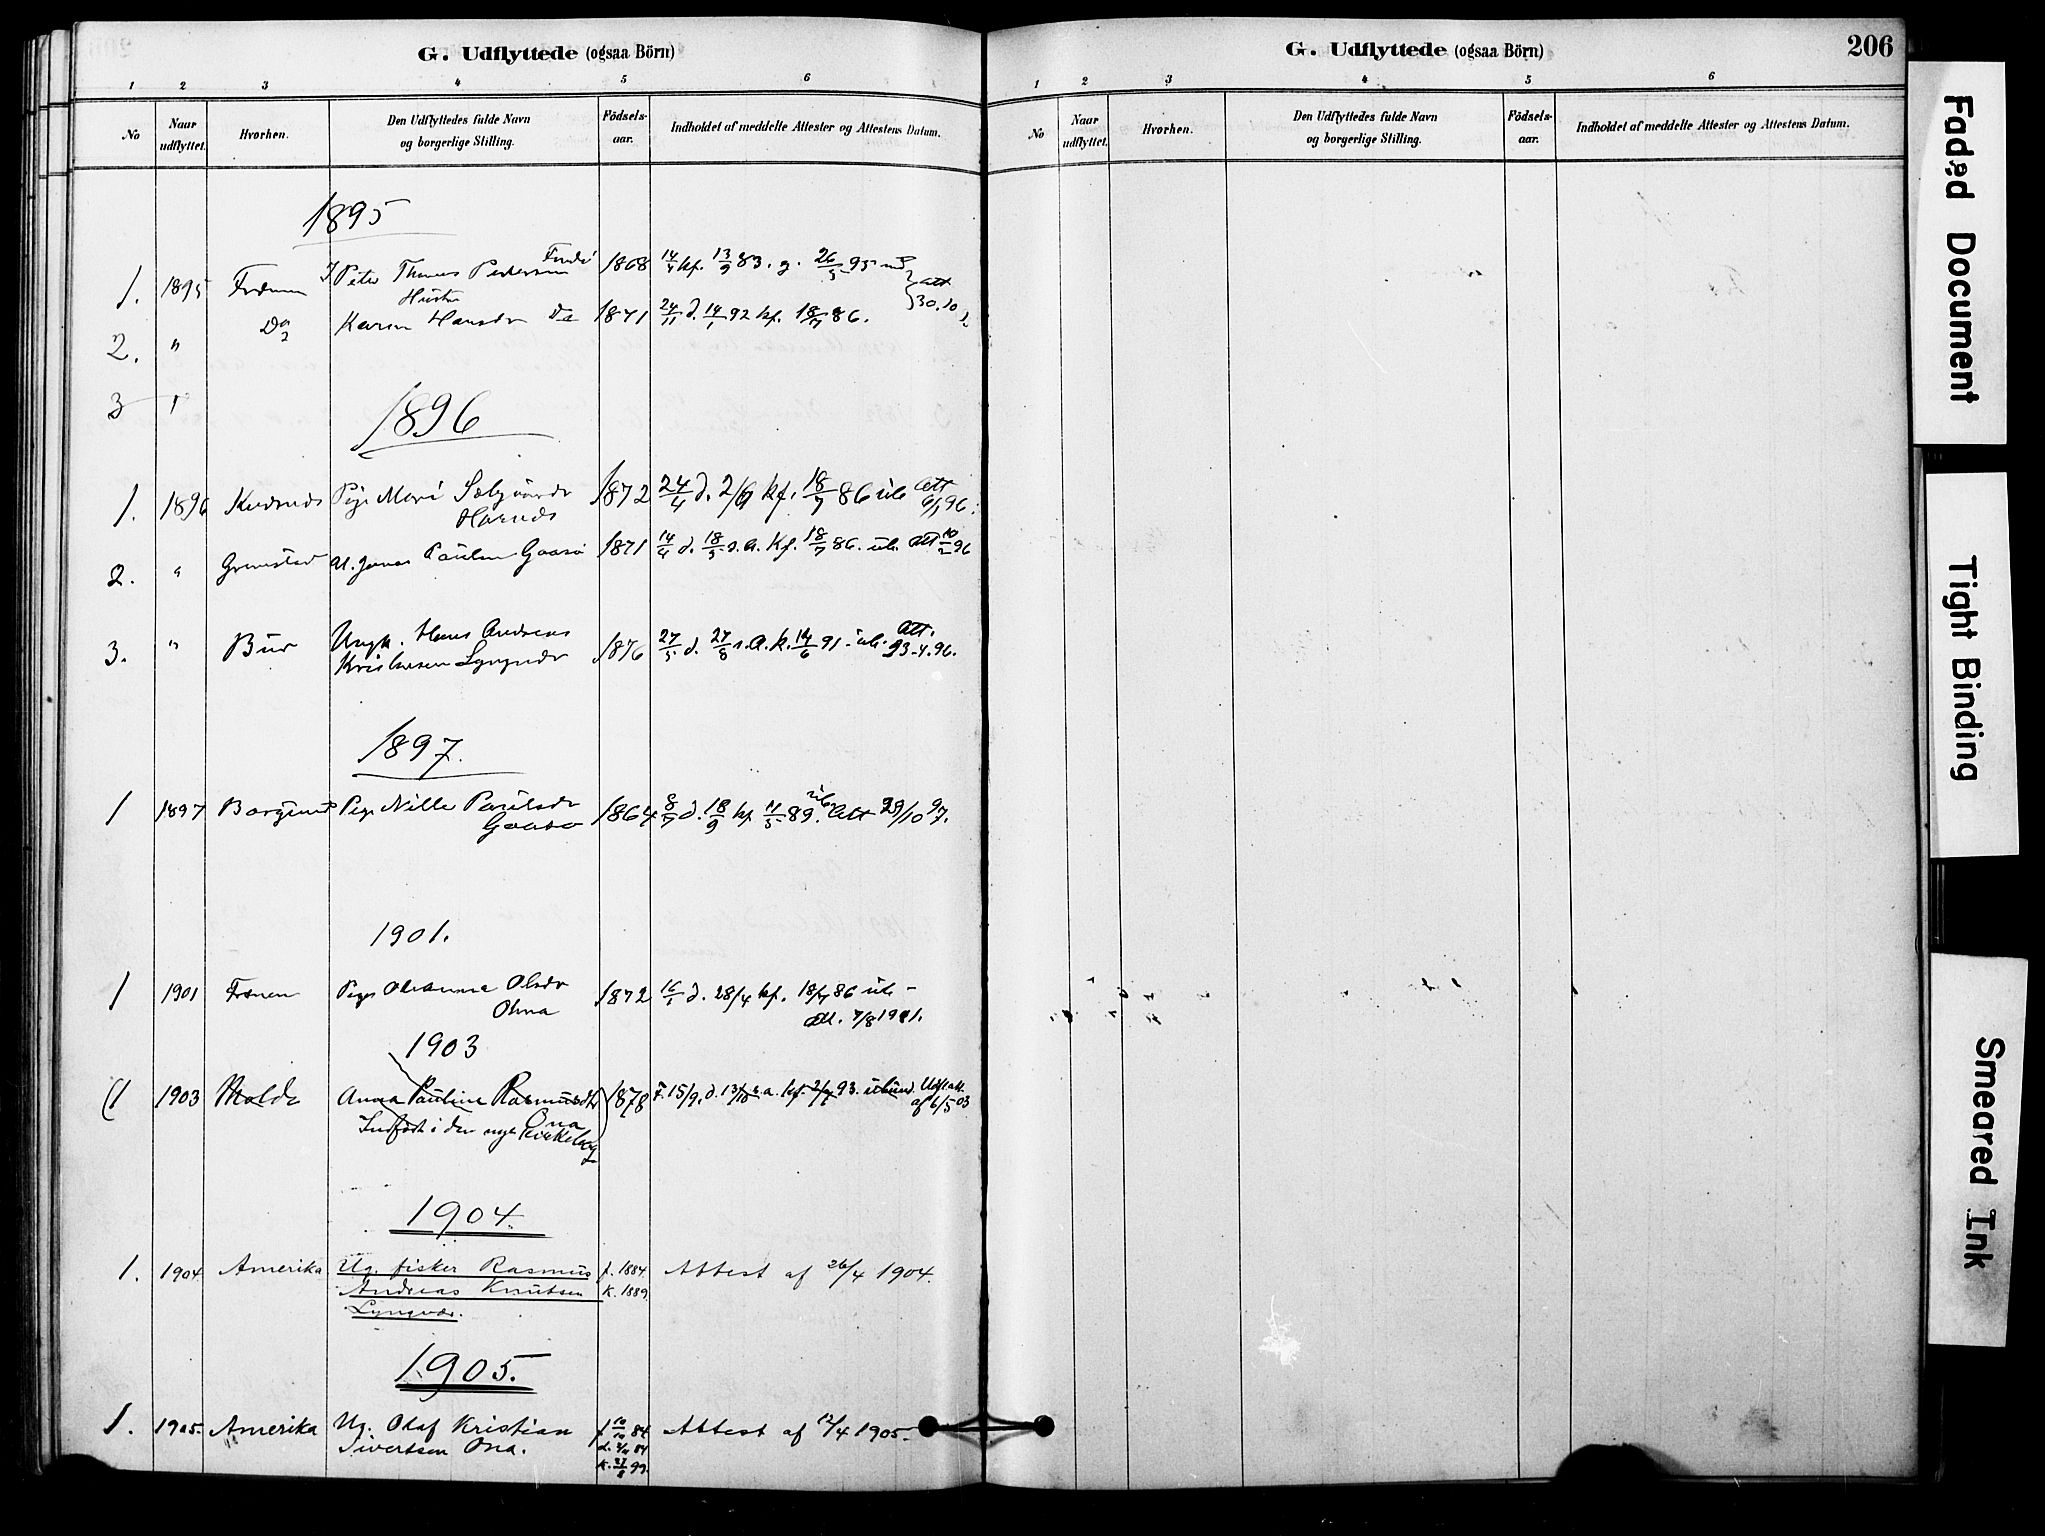 G. Udflyttede (ogsaa Börn)
1 2 3 4 5 6
No
Naar udflyttet.
Hvorhen.
Den Udflyttedes fulde Navn og borgerlige Stilling.
Födsels-aar.
Indholdet af meddelte Attester og Attestens Datum.
1895
1. 1895 Frænen Peter Thomas Pedersen 1868 14/4 kf. 13/9 83. g. 26/5 95
Hustru
2. " Do Karen Hansdr Do 1871 24/11 d. 14/1 92 kf. 18/7 86. att 30.10
3 "
1896
1. 1896 Pige Marie 1872 24/4 d. 2/6 kf. 18/7 86 ub Att 6/1 96.
2. " Grimstad Paulsen Gaasø 1871 14/4 d. 18/5 s.a. Kf. 18/7 86. ub. Att 10/2 96
3. " Bud Ungk. Hans Andreas
Kristensen Lyngvær 1876 27/5 d. 27/8 s.a. k. 14/6 91 - ub. Att. 23-4.96.
1897.
1 1897 Borgund Pige Nille Paulsdr
Gaasø 1864 8/7 d. 18/9 kf 11/5 89. ub Att 29/10 97.
1901.
1 1901 Frænen Pige Olsdr
Ohna 1872 16/1 d. 28/4 kf. 18/7 86 ub -
Att. 7/8 1901.
1903
(1 1903 Molde Anna Pauline Rasmusdtr
Ona 1878 F. 15/9, d. 13/10 s.a. kf. 2/7 93. ubund. Udfl.att. af 6/5 03
Indført i den nye Kirkebog
1904.
1. 1904 Amerika Ug. fisker Rasmus f. 1884. Attest af 26/4 1904.
Andreas Knutsen K. 1889.
Lyngvær.
1905.
1. 1905. Amerika Ug. Olaf Kristian f 10/10 84. Attest af 12/4 1905.
Sivertsen Ona. d. 2/11 84
K. 27/8 99.
G. Udflyttede (ogsaa Börn)
206
1 2 3 4 5 6
No
Naar udflyttet.
Hvorhen.
Den Udflyttedes fulde Navn og borgerlige Stilling.
Födsels-aar.
Indholdet af meddelte Attester og Attestens Datum.
Faded Document
Tight Binding
Smeared Ink